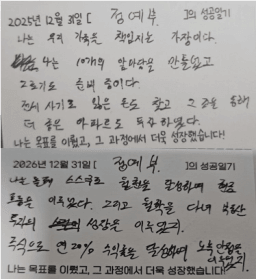 2025년 12월 31일 [ 정예부 ]의 성공일기
나는 우리 가족을 책임지는 가장이다.
4는 10개의 만들었고
2호기도 준비 중이다.
전세 사기로 잃은 돈도 찾고 그 돈을 통해
더 좋은 아파트도 취득하였다.
나는 목표를 이뤘고, 그 과정에서 더욱 성장했습니다!
2026년 12월 31일 [ 정예부 ]의 성공일기
나는 스스로 달성하여 현금
흐름을 이루었다. 그리고 월학을 다녀 부동산
투자의 성장을 이루었지.
주식으로 연 20% 수익률을 달성하며 노후 안정도
이루었지.
나는 목표를 이뤘고, 그 과정에서 더욱 성장했습니다!